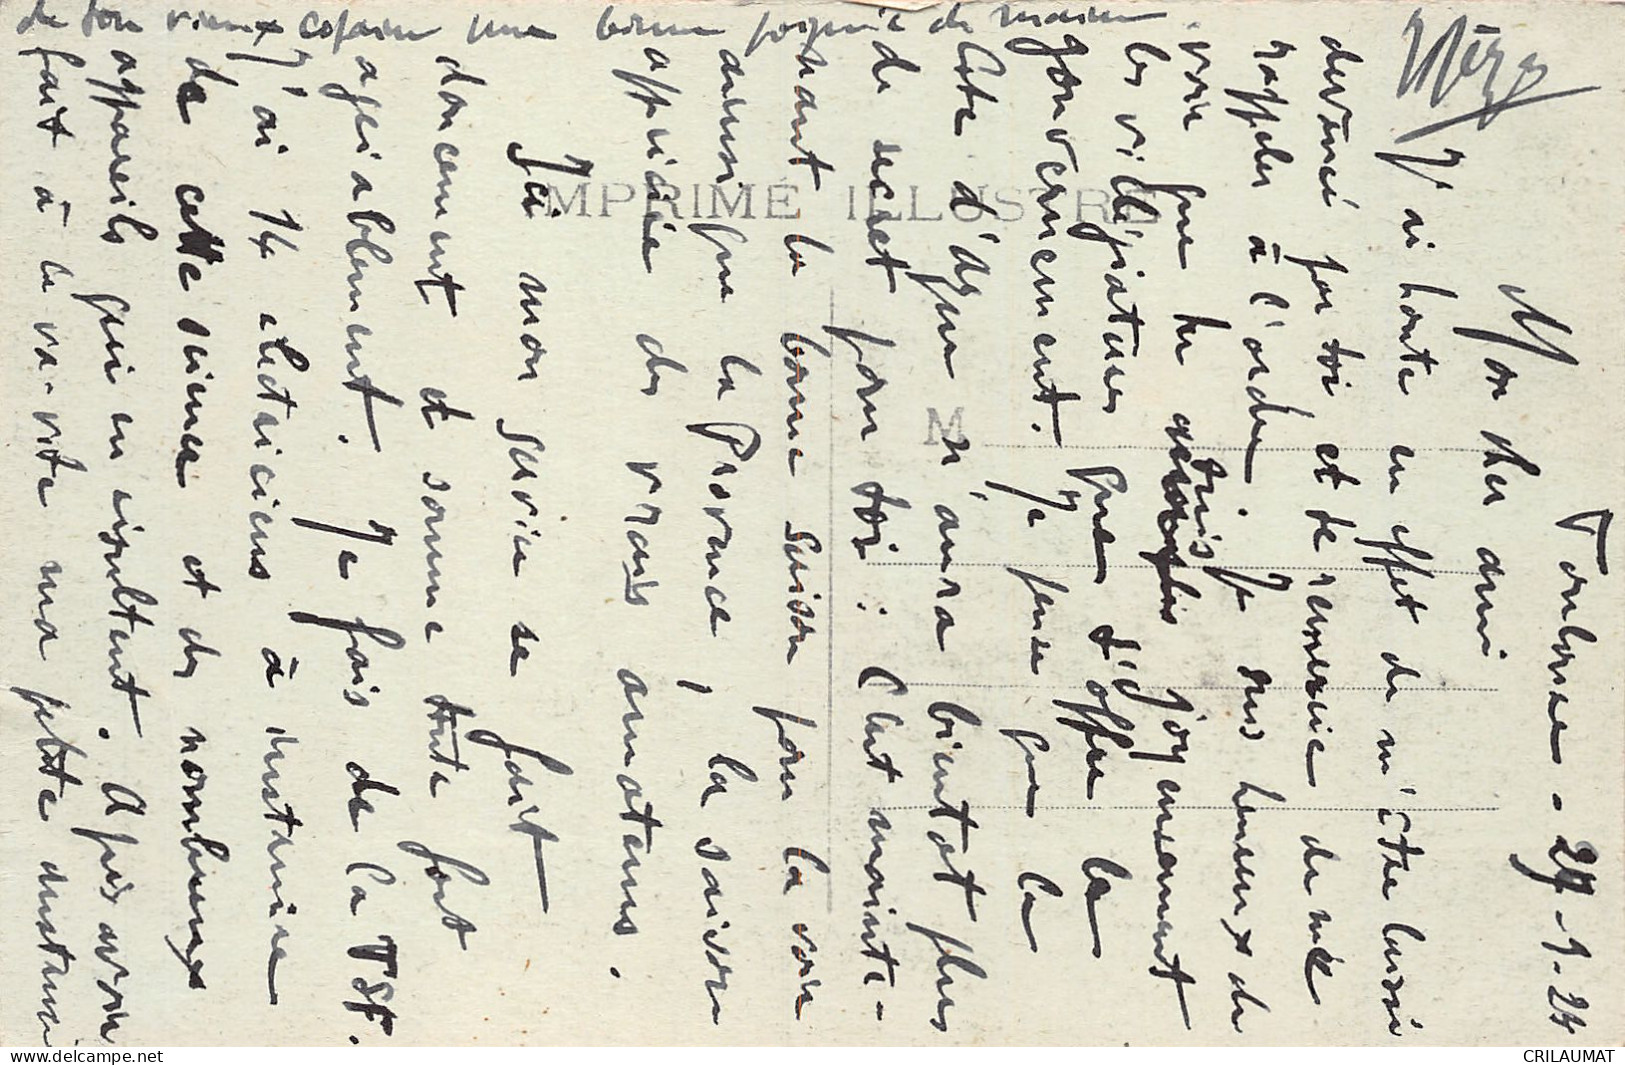 Toulouse. 29-1.24
Mon cher ami
J'ai honte en effet de m'être laissé
devancé par toi et te remercie de me
rappeler à l'ordre. Je suis heureux de
voir que tu suis joyeusement
les villégiatures que t'offre le
gouvernement. Je pense que la
Côte d'Azur n'aura bientôt plus
de secret pour toi : c'est mainte-
nant la bonne saison pour la voir
ainsi que la Provence, la saison
appréciée des vrais amateurs.
Ici mon service se fait
doucement et somme toute fort
agréablement. Je fais de la TSF.
J'ai 14 électriciens à instruire
de cette science et de nombreux
appareils qui en résultent. Après avoir
fait à la va-vite ma petite
de ton vieux copain une bonne poignée de main.
IMPRIMÉ ILLUSTRÉ
M
CRILAUMAT